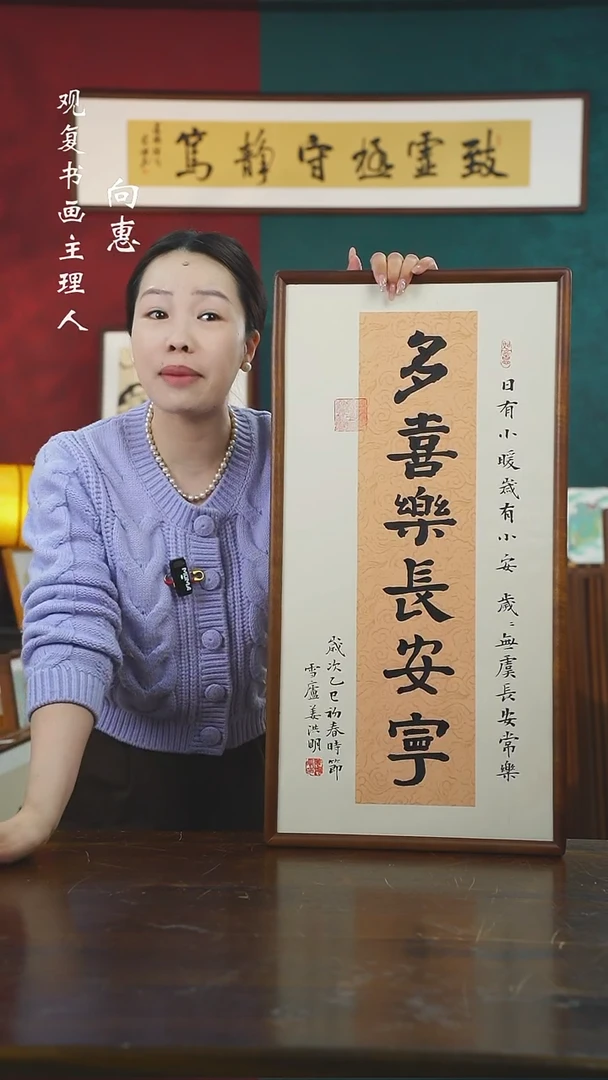 观复书画主理人
向惠
致虛極守靜篤
日有小暖歲有小安 歲〻無虞長安常樂
多喜樂長安寧
歲次乙巳初春時節
雪廬姜洪明